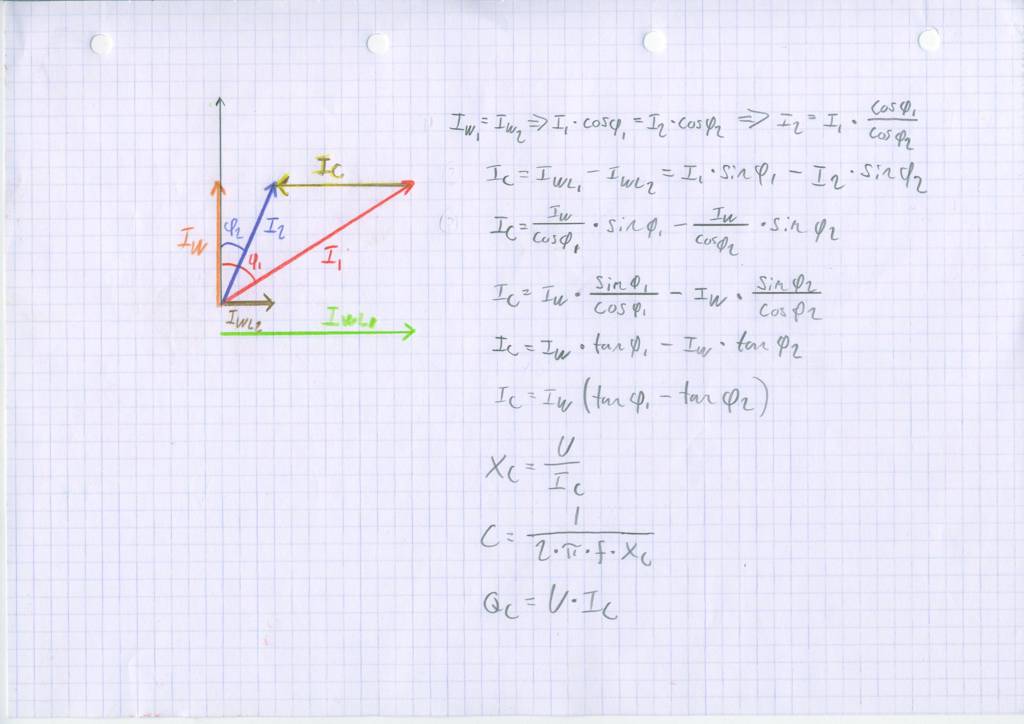 I_C
I_W
φ₂
I₂
φ₁
I₁
I_WL2
I_WL1
I_W₁ = I_W₂ ⇒ I₁ · cosφ₁ = I₂ · cosφ₂ ⇒ I₂ = I₁ · cosφ₁/cosφ₂
I_C = I_WL₁ − I_WL₂ = I₁ · sinφ₁ − I₂ · sinφ₂
I_C = I_W/cosφ₁ · sinφ₁ − I_W/cosφ₂ · sinφ₂
I_C = I_W · sinφ₁/cosφ₁ − I_W · sinφ₂/cosφ₂
I_C = I_W · tanφ₁ − I_W · tanφ₂
I_C = I_W (tanφ₁ − tanφ₂)
X_C = U/I_C
C = 1/(2·π·f·X_C)
Q_C = U·I_C